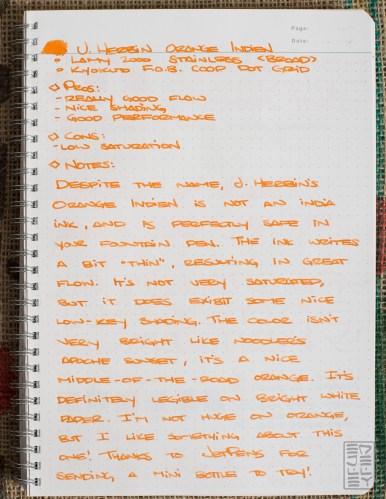 Page:
Date:
J. HERBIN ORANGE INDIEN
LAMY 2000 STAINLESS (BROAD)
KYOKUTO F.O.B. COOP DOT GRID
PROS:
- REALLY GOOD FLOW
- NICE SHADING
- GOOD PERFORMANCE
CONS:
- LOW SATURATION
NOTES:
DESPITE THE NAME, J. HERBIN'S
ORANGE INDIEN IS NOT AN INDIA
INK, AND IS PERFECTLY SAFE IN
YOUR FOUNTAIN PEN. THE INK WRITES
A BIT "THIN", RESULTING IN GREAT
FLOW. IT'S NOT VERY SATURATED,
BUT IT DOES EXIBIT SOME NICE
LOW-KEY SHADING. THE COLOR ISN'T
VERY BRIGHT LIKE NOODLER'S
APACHE SUNSET, IT'S A NICE
MIDDLE-OF-THE-ROAD ORANGE. IT'S
DEFINITELY LEGIBLE ON BRIGHT WHITE
PAPER. I'M NOT HUGE ON ORANGE,
BUT I LIKE SOMETHING ABOUT THIS
ONE! THANKS TO JETPENS FOR
SENDING A MINI BOTTLE TO TRY!